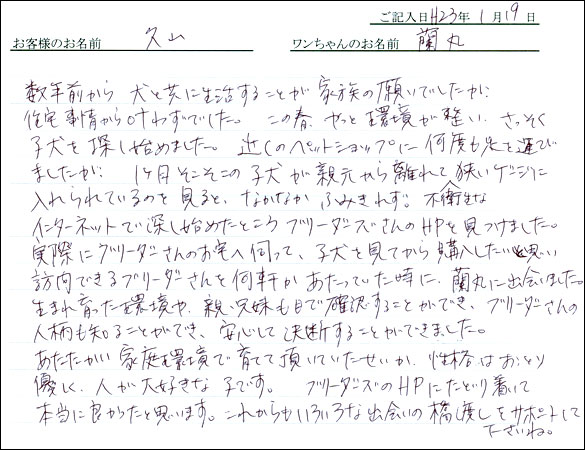 ご記入日H23年 1月19日
お客様のお名前 久山 ワンちゃんのお名前 蘭丸
数年前から 犬と共に生活することが 家族の願いでしたが、
住宅事情から叶わずでした。 この春、やっと環境が整い、さっそく
子犬を探し始めました。 近くのペットショップに 何度も足を運び
ましたが、 1ヶ月そこそこの子犬が親元から離れて狭いゲージに
入れられているのを見ると、なかなか ふみきれず、 不衛生な
インターネットで探し始めたところ ブリーダーズさんのHPを見つけました。
実際にブリーダーさんのお宅へ伺って、子犬を見てから購入したいと思い
訪問できるブリーダーさんを何軒かあたっていた時に、蘭丸に出会いました。
生まれ育った環境や、親、兄妹も目で確認することができ、ブリーダーさんの
人柄も知ることができ、安心して決断することができました。
あたたかい家庭環境で育てて頂いていたせいか、性格はおっとり
優しく、人が大好きな子です。 ブリーダーズのHPにたどり着いて
本当に良かったと思います。これからもいろいろな出会いの橋渡しをサポートして
下さいね。